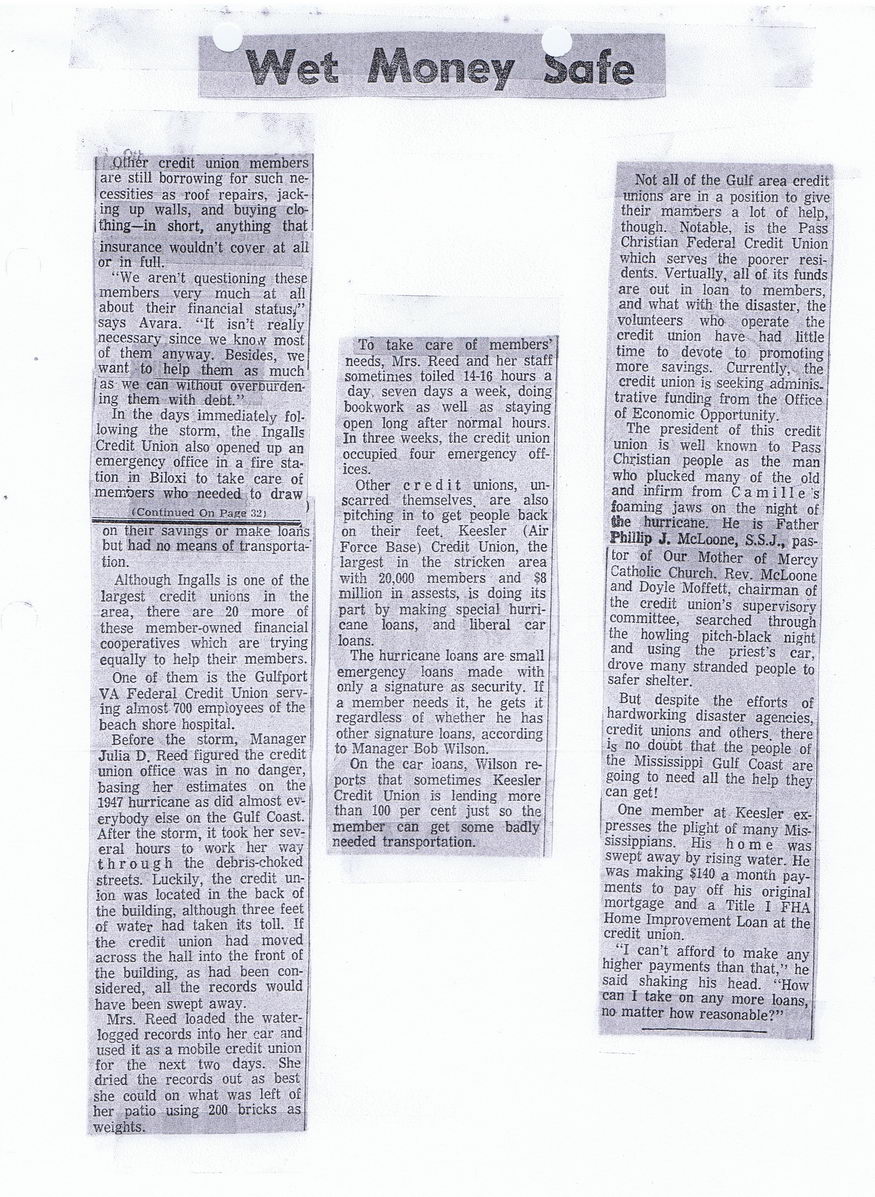 Wet Money Safe
Other credit union members
are still borrowing for such ne-
cessities as roof repairs, jack-
ing up walls, and buying clo-
thing—in short, anything that
insurance wouldn't cover at all
or in full.
"We aren't questioning these
members very much at all
about their financial status,"
says Avara. "It isn't really
necessary since we know most
of them anyway. Besides, we
want to help them as much
as we can without overburden-
ing them with debt."
In the days immediately fol-
lowing the storm, the Ingalls
Credit Union also opened up an
emergency office in a fire sta-
tion in Biloxi to take care of
members who needed to draw
(Continued On Page 32)
on their savings or make loans
but had no means of transporta-
tion.
Although Ingalls is one of the
largest credit unions in the
area, there are 20 more of
these member-owned financial
cooperatives which are trying
equally to help their members.
One of them is the Gulfport
VA Federal Credit Union serv-
ing almost 700 employees of the
beach shore hospital.
Before the storm, Manager
Julia D. Reed figured the credit
union office was in no danger,
basing her estimates on the
1947 hurricane as did almost ev-
erybody else on the Gulf Coast.
After the storm, it took her sev-
eral hours to work her way
through the debris-choked
streets. Luckily, the credit un-
ion was located in the back of
the building, although three feet
of water had taken its toll. If
the credit union had moved
across the hall into the front of
the building, as had been con-
sidered, all the records would
have been swept away.
Mrs. Reed loaded the water-
logged records into her car and
used it as a mobile credit union
for the next two days. She
dried the records out as best
she could on what was left of
her patio using 200 bricks as
weights.
To take care of members'
needs, Mrs. Reed and her staff
sometimes toiled 14-16 hours a
day, seven days a week, doing
bookwork as well as staying
open long after normal hours.
In three weeks, the credit union
occupied four emergency off-
ices.
Other credit unions, un-
scarred themselves, are also
pitching in to get people back
on their feet. Keesler (Air
Force Base) Credit Union, the
largest in the stricken area
with 20,000 members and $8
million in assests, is doing its
part by making special hurri-
cane loans, and liberal car
loans.
The hurricane loans are small
emergency loans made with
only a signature as security. If
a member needs it, he gets it
regardless of whether he has
other signature loans, according
to Manager Bob Wilson.
On the car loans, Wilson re-
ports that sometimes Keesler
Credit Union is lending more
than 100 per cent just so the
member can get some badly
needed transportation.
Not all of the Gulf area credit
unions are in a position to give
their mambers a lot of help,
though. Notable, is the Pass
Christian Federal Credit Union
which serves the poorer resi-
dents. Vertually, all of its funds
are out in loan to members,
and what with the disaster, the
volunteers who operate the
credit union have had little
time to devote to promoting
more savings. Currently, the
credit union is seeking adminis-
trative funding from the Office
of Economic Opportunity.
The president of this credit
union is well known to Pass
Christian people as the man
who plucked many of the old
and infirm from Camille's
foaming jaws on the night of
the hurricane. He is Father
Phillip J. McLoone, S.S.J., pas-
tor of Our Mother of Mercy
Catholic Church. Rev. McLoone
and Doyle Moffett, chairman of
the credit union's supervisory
committee, searched through
the howling pitch-black night
and using the priest's car,
drove many stranded people to
safer shelter.
But despite the efforts of
hardworking disaster agencies,
credit unions and others, there
is no doubt that the people of
the Mississippi Gulf Coast are
going to need all the help they
can get!
One member at Keesler ex-
presses the plight of many Mis-
sissippians. His home was
swept away by rising water. He
was making $140 a month pay-
ments to pay off his original
mortgage and a Title I FHA
Home Improvement Loan at the
credit union.
"I can't afford to make any
higher payments than that," he
said shaking his head. "How
can I take on any more loans,
no matter how reasonable?"